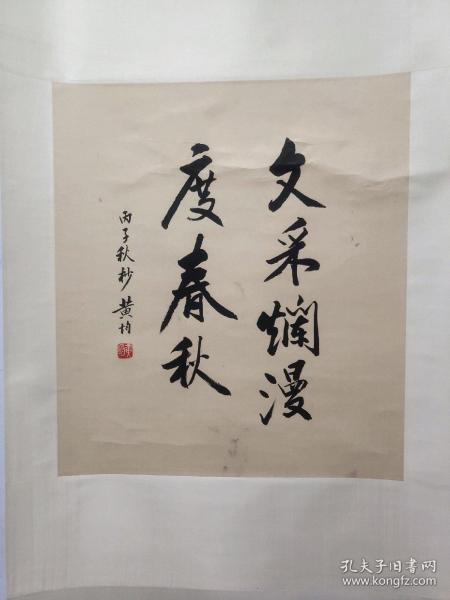 文采爛漫
度春秋
丙子秋杪 黄均
孔夫子旧书网
www.kongfz.com